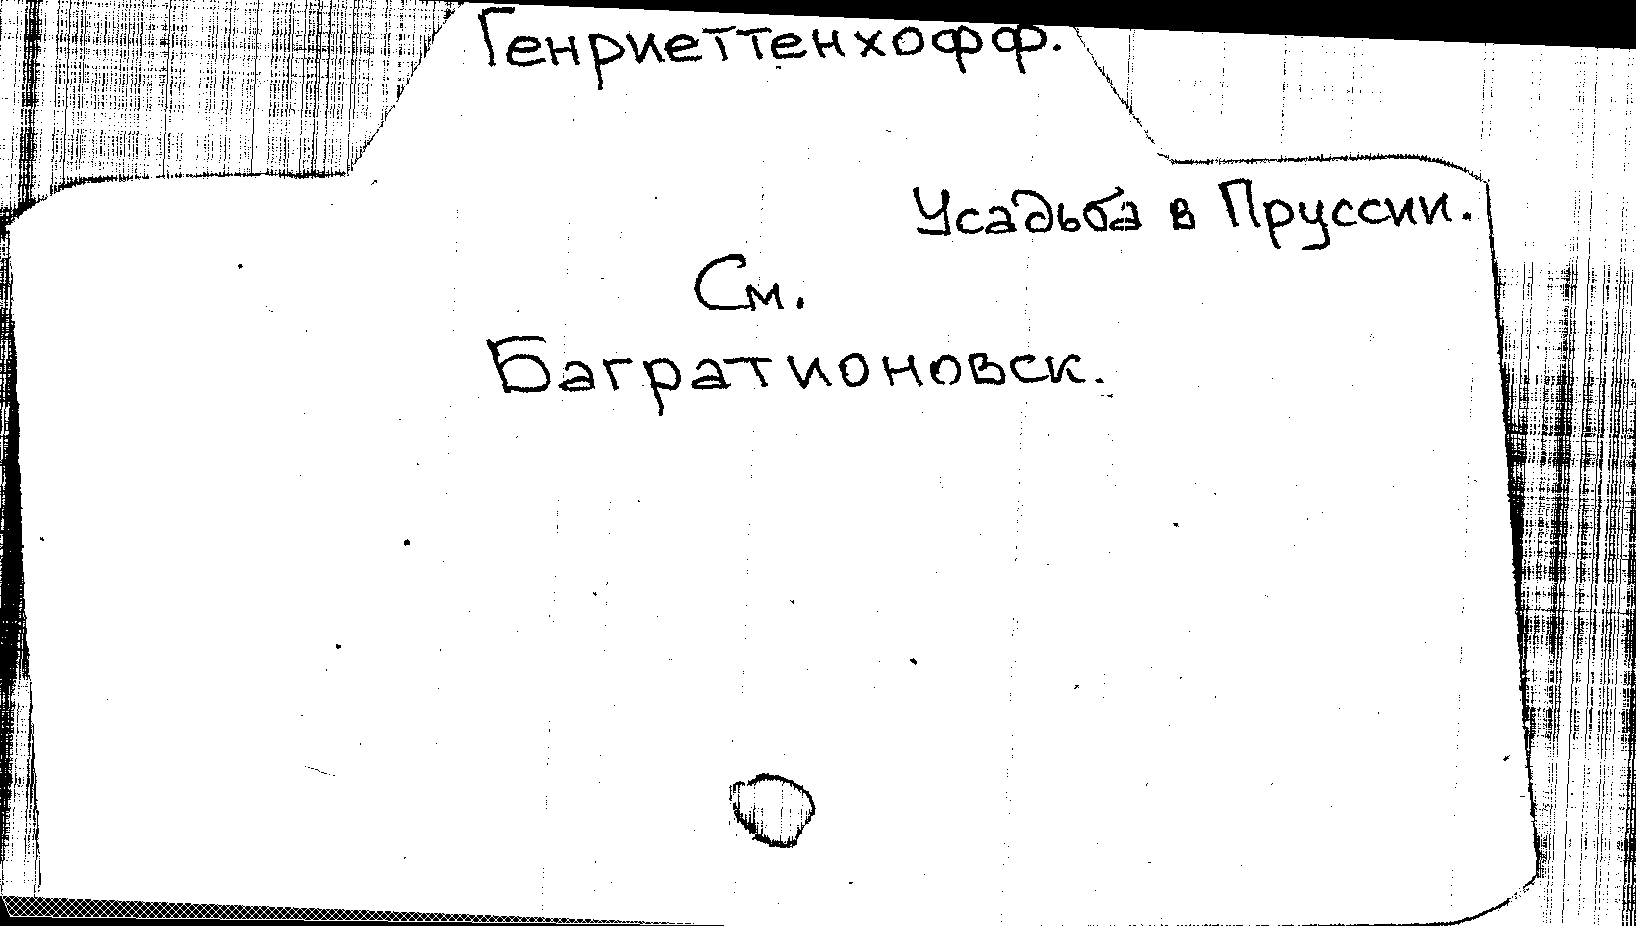 Генриеттенхофф.
Усадьба в Пруссии.
См.
Багратионовск.